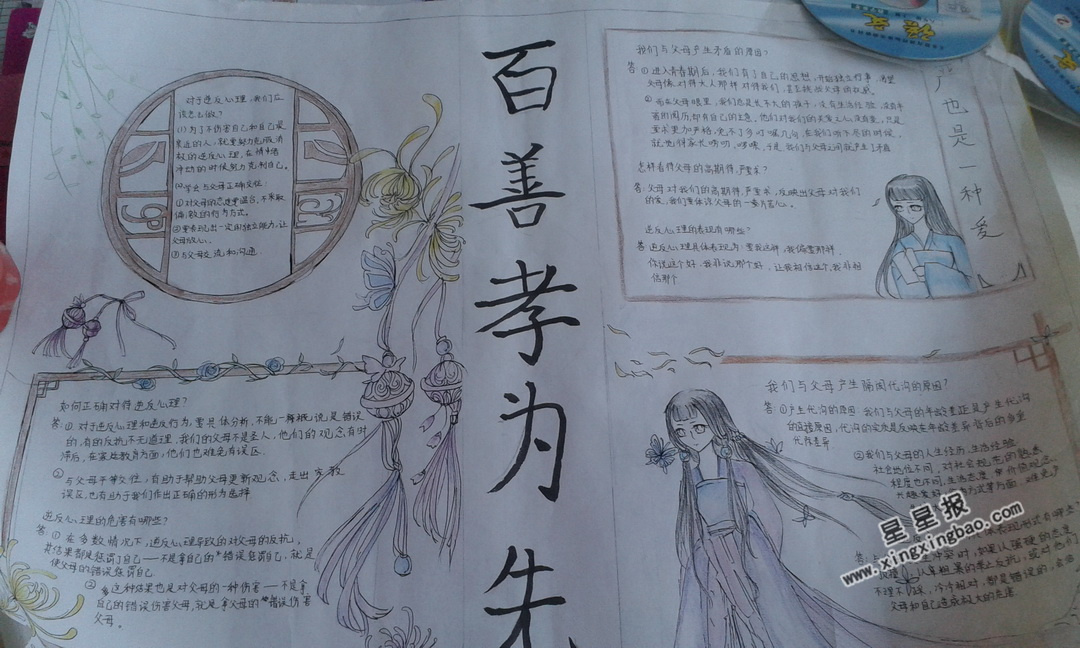 百善孝为先
对于逆反心理,我们应
该怎么做?
(1)为了不伤害自己和自己最
亲近的人,就要努力克服消
极的逆反心理,在情绪
冲动的时候努力克制自己。
(2)学会与父母正确交往。
①对父母的态度温合,不采取
偏激的行为方式。
②要表现出一定的独立能力,让
父母放心。
③与父母交流和沟通
如何正确对待逆反心理?
答①对于逆反心理和逆反行为,要具体分析,不能一棒概说是错误
的,有的反抗不无道理,我们的父母不是圣人,他们的观念有时
滞后,在家庭教育方面,他们也难免有误区.
②与父母平等交往,有助于帮助父母更新观念,走出家教
误区,也有助于我们作出正确的行为选择
逆反心理的危害有哪些?
答①在多数情况下,逆反心理导致的对父母的反抗,
其结果都是惩罚了自己——不是拿自己的"错误惩罚自己,就是
使父母的错误惩罚自己
②这种结果也是对父母的一种伤害——不是拿
自己的错误伤害父母,就是拿父母的错误伤害
父母。
我们与父母产生矛盾的原因?
答①进入青春期后,我们有了自己的思想,开始独立行事,希望
父母像对待大人那样对待我们,甚至挑战父母的权威
②而在父母眼里,我们也是长不大的孩子,没有生活经验,没有丰
就觉得家长唠叨,啰嗦,于是,我们与父母之间就产生了矛盾
怎样看待父母的高期待,严要求?
答:父母对我们的高期待,严要求,反映出父母对我们
的爱,我们要体谅父母的一番苦心。
逆反心理的表现有哪些?
答 逆反心理具体表现为:要我这样,我偏要那样.
你说这个好,我非说那个好,让我相信这个,我非相
信那个
严也是一种爱
我们与父母产生隔阂代沟的原因?
答①产生代沟的原因 我们与父母的年龄差距是产生代沟
的直接原因,代沟的实质是反映在年龄差异背后的乡里
代作差异
②我们与父母的人生经历,生活经验
社会地位不同,对社会规范的熟悉
程度也不同,生活态度
不理不睬,冷冷相对,都是错误的,会给
父母和自己造成极大的危害
语文
2
星星报
www.xingxingbao.com